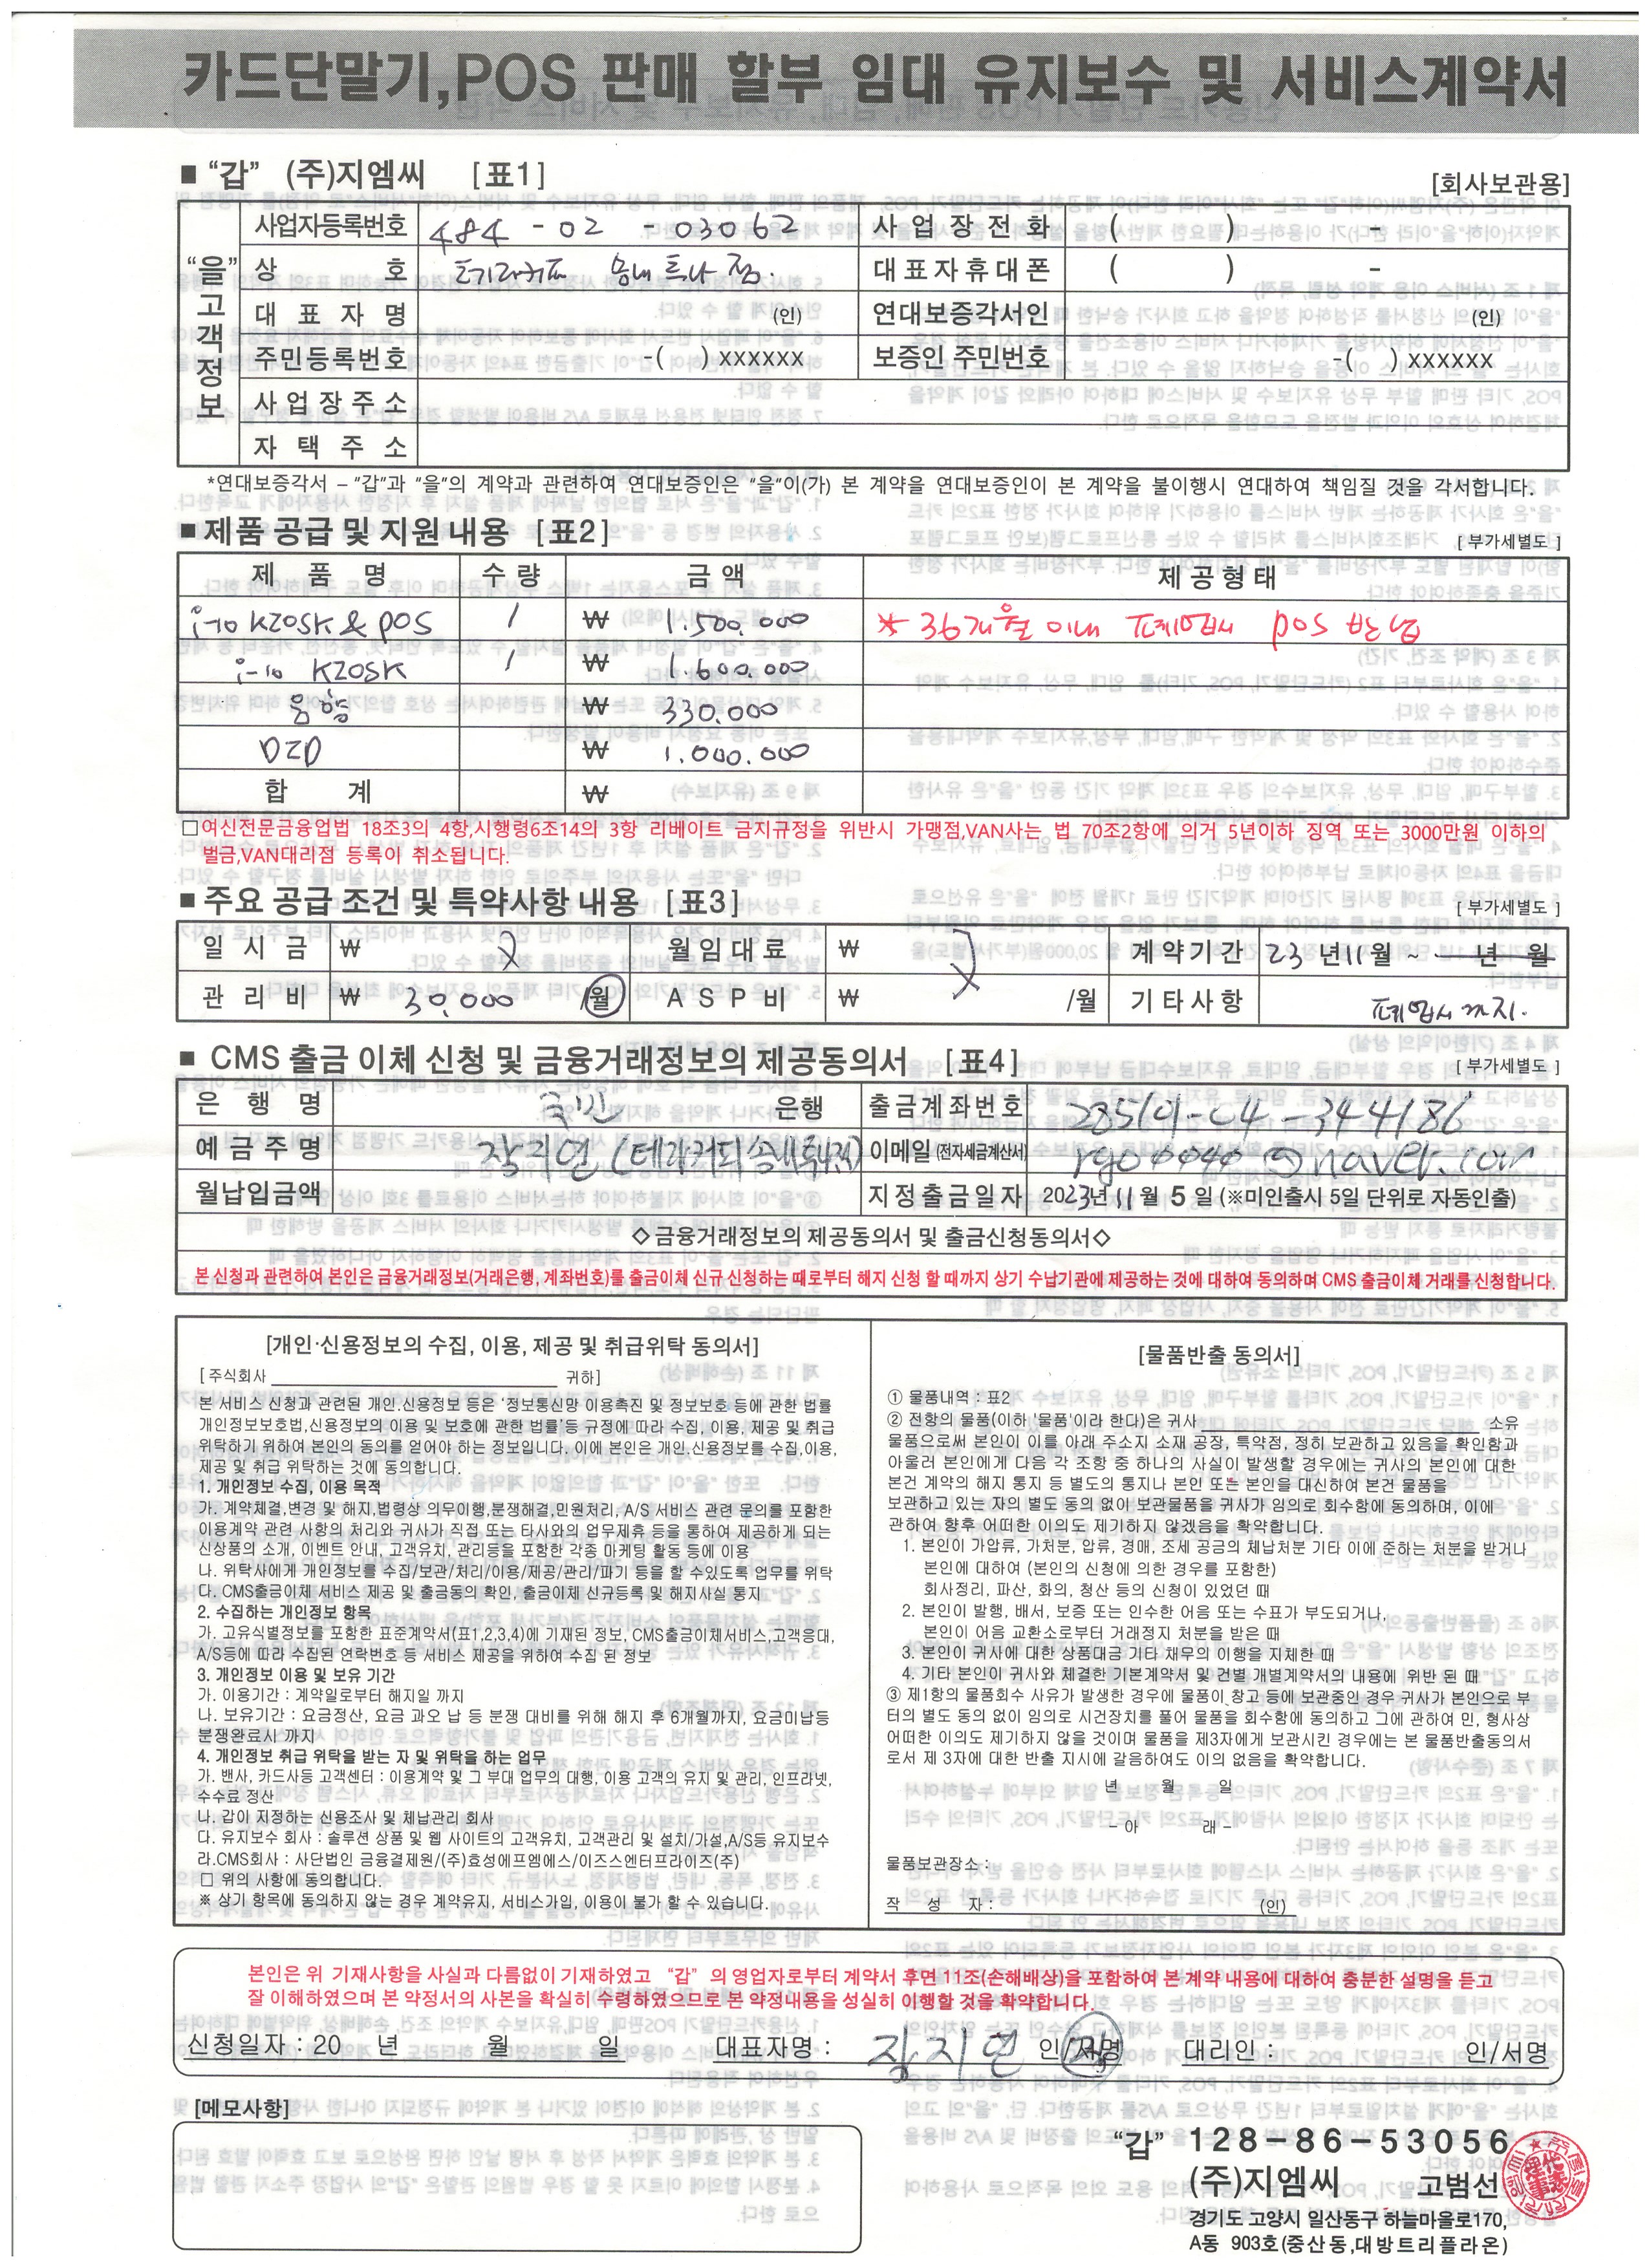 카드단말기,POS 판매 할부 임대 유지보수 및 서비스계약서
■ "갑" (주)지엠씨 [표1]
[회사보관용]
"을" 고객정보
사업자등록번호 484 - 02 - 03062 사업장전화 ( ) -
상 호 대표자휴대폰 ( ) -
대 표 자 명 (인) 연대보증각서인 (인)
주민등록번호 -( ) xxxxxx 보증인 주민번호 -( ) xxxxxx
사업장주소
자 택 주 소
*연대보증각서 – "갑"과 "을"의 계약과 관련하여 연대보증인은 "을"이(가) 본 계약을 연대보증인이 본 계약을 불이행시 연대하여 책임질 것을 각서합니다.
■ 제품 공급 및 지원 내용 [표2]
[ 부가세별도 ]
제 품 명 수 량 금 액 제공형태
i-10 KZOSK & POS 1 ₩ 1.500.000 * 36개월 이내 폐업시 POS 반납
i-10 KZOSK 1 ₩ 1.600.000
음향 ₩ 330.000
DZD ₩ 1.000.000
합 계 ₩
□여신전문금융업법 18조3의 4항,시행령6조14의 3항 리베이트 금지규정을 위반시 가맹점,VAN사는 법 70조2항에 의거 5년이하 징역 또는 3000만원 이하의
벌금,VAN대리점 등록이 취소됩니다.
■ 주요 공급 조건 및 특약사항 내용 [표3]
[ 부가세별도 ]
일 시 금 ₩ 월임대료 ₩ 계약기간 23 년 11 월 ~ 년 월
관 리 비 ₩ 30,000 /월 A S P 비 ₩ /월 기타사항 폐업시 까지.
■ CMS 출금 이체 신청 및 금융거래정보의 제공동의서 [표4]
[ 부가세별도 ]
은 행 명 국민 은행 출금계좌번호 285101-04-344186
예 금 주 명 장지연 이메일(전자세금계산서) @naver.com
월납입금액 지정출금일자 2023년 11 월 5 일 (※미인출시 5일 단위로 자동인출)
◇금융거래정보의 제공동의서 및 출금신청동의서◇
본 신청과 관련하여 본인은 금융거래정보(거래은행, 계좌번호)를 출금이체 신규 신청하는 때로부터 해지 신청 할 때까지 상기 수납기관에 제공하는 것에 대하여 동의하며 CMS 출금이체 거래를 신청합니다.
[개인·신용정보의 수집, 이용, 제공 및 취급위탁 동의서]
[ 주식회사 귀하]
본 서비스 신청과 관련된 개인.신용정보 등은 '정보통신망 이용촉진 및 정보보호 등에 관한 법률
개인정보보호법,신용정보의 이용 및 보호에 관한 법률'등 규정에 따라 수집, 이용, 제공 및 취급
위탁하기 위하여 본인의 동의를 얻어야 하는 정보입니다. 이에 본인은 개인.신용정보를 수집,이용,
제공 및 취급 위탁하는 것에 동의합니다.
1. 개인정보 수집, 이용 목적
가. 계약체결,변경 및 해지,법령상 의무이행,분쟁해결,민원처리, A/S 서비스 관련 문의를 포함한
이용계약 관련 사항의 처리와 귀사가 직접 또는 타사와의 업무제휴 등을 통하여 제공하게 되는
신상품의 소개, 이벤트 안내, 고객유치, 관리등을 포함한 각종 마케팅 활동 등에 이용
나. 위탁사에게 개인정보를 수집/보관/처리/이용/제공/관리/파기 등을 할 수있도록 업무를 위탁
다. CMS출금이체 서비스 제공 및 출금동의 확인, 출금이체 신규등록 및 해지사실 통지
2. 수집하는 개인정보 항목
가. 고유식별정보를 포함한 표준계약서(표1,2,3,4)에 기재된 정보, CMS출금이체서비스,고객응대,
A/S등에 따라 수집된 연락번호 등 서비스 제공을 위하여 수집 된 정보
3. 개인정보 이용 및 보유 기간
가. 이용기간 : 계약일로부터 해지일 까지
나. 보유기간 : 요금정산, 요금 과오 납 등 분쟁 대비를 위해 해지 후 6개월까지, 요금미납등
분쟁완료시 까지
4. 개인정보 취급 위탁을 받는 자 및 위탁을 하는 업무
가. 밴사, 카드사등 고객센터 : 이용계약 및 그 부대 업무의 대행, 이용 고객의 유지 및 관리, 인프라넷,
수수료 정산
나. 갑이 지정하는 신용조사 및 체납관리 회사
다. 유지보수 회사 : 솔루션 상품 및 웹 사이트의 고객유치, 고객관리 및 설치/가설,A/S등 유지보수
라.CMS회사 : 사단법인 금융결제원/(주)효성에프엠에스/이즈스엔터프라이즈(주)
□ 위의 사항에 동의합니다.
※ 상기 항목에 동의하지 않는 경우 계약유지, 서비스가입, 이용이 불가 할 수 있습니다.
[물품반출 동의서]
① 물품내역 : 표2
② 전항의 물품(이하 '물품'이라 한다)은 귀사 소유
물품으로써 본인이 이를 아래 주소지 소재 공장, 특약점, 정히 보관하고 있음을 확인함과
아울러 본인에게 다음 각 조항 중 하나의 사실이 발생할 경우에는 귀사의 본인에 대한
본건 계약의 해지 통지 등 별도의 통지나 본인 또는 본인을 대신하여 본건 물품을
보관하고 있는 자의 별도 동의 없이 보관물품을 귀사가 임의로 회수함에 동의하며, 이에
관하여 향후 어떠한 이의도 제기하지 않겠음을 확약합니다.
1. 본인이 가압류, 가처분, 압류, 경매, 조세 공금의 체납처분 기타 이에 준하는 처분을 받거나
본인에 대하여 (본인의 신청에 의한 경우를 포함한)
회사정리, 파산, 화의, 청산 등의 신청이 있었던 때
2. 본인이 발행, 배서, 보증 또는 인수한 어음 또는 수표가 부도되거나,
본인이 어음 교환소로부터 거래정지 처분을 받은 때
3. 본인이 귀사에 대한 상품대금 기타 채무의 이행을 지체한 때
4. 기타 본인이 귀사와 체결한 기본계약서 및 건별 개별계약서의 내용에 위반 된 때
③ 제1항의 물품회수 사유가 발생한 경우에 물품이 창고 등에 보관중인 경우 귀사가 본인으로 부
터의 별도 동의 없이 임의로 시건장치를 풀어 물품을 회수함에 동의하고 그에 관하여 민, 형사상
어떠한 이의도 제기하지 않을 것이며 물품을 제3자에게 보관시킨 경우에는 본 물품반출동의서
로서 제 3자에 대한 반출 지시에 갈음하여도 이의 없음을 확약합니다.
년 월 일
– 아 래 –
물품보관장소 :
작 성 자 : (인)
본인은 위 기재사항을 사실과 다름없이 기재하였고 "갑" 의 영업자로부터 계약서 후면 11조(손해배상)을 포함하여 본 계약 내용에 대하여 충분한 설명을 듣고
잘 이해하였으며 본 약정서의 사본을 확실히 수령하였으므로 본 약정내용을 성실히 이행할 것을 확약합니다.
신청일자 : 20 년 월 일 대표자명 : 장지연 인/서명 대리인 : 인/서명
[메모사항]
"갑" 128-86-53056
(주)지엠씨 고범선
경기도 고양시 일산동구 하늘마을로170,
A동 903호(중산동,대방트리플라온)